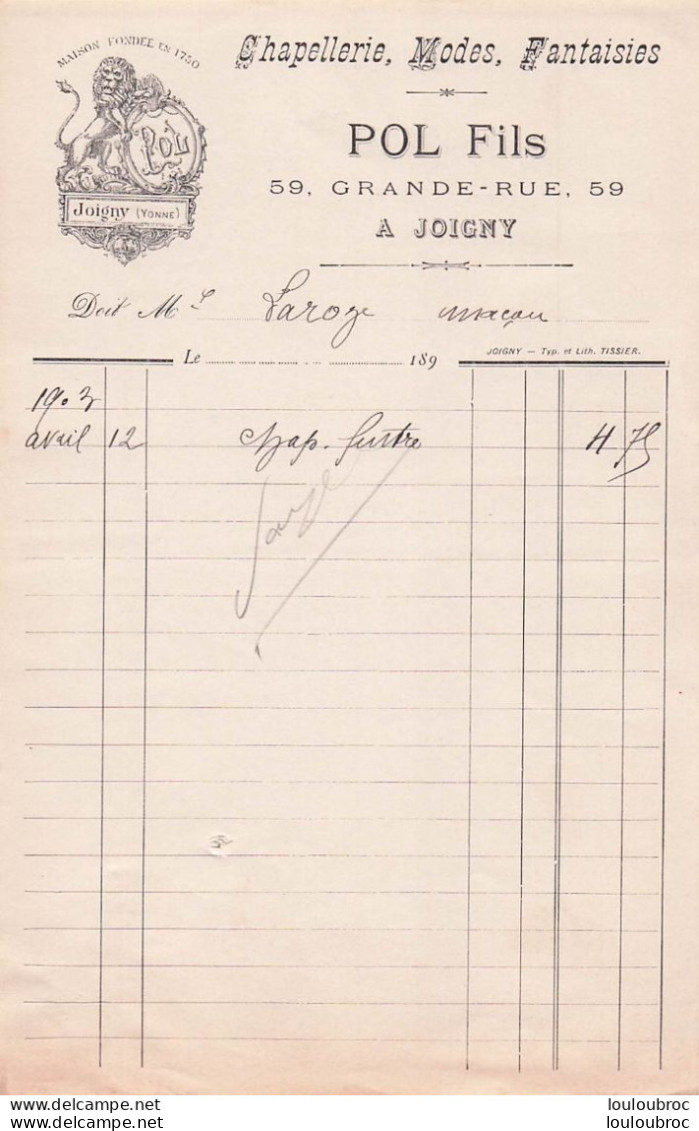 MAISON FONDÉE EN 1750
POL
Joigny (YONNE)
Chapellerie, Modes, Fantaisies
POL Fils
59, GRANDE-RUE, 59
A JOIGNY
Doit Mr Laroze maçon
Le ........................ 189
JOIGNY — Typ. et Lith. TISSIER.
1903
avril 12 Chap. feutre 4 75
www.delcampe.net
louloubroc
louloubroc